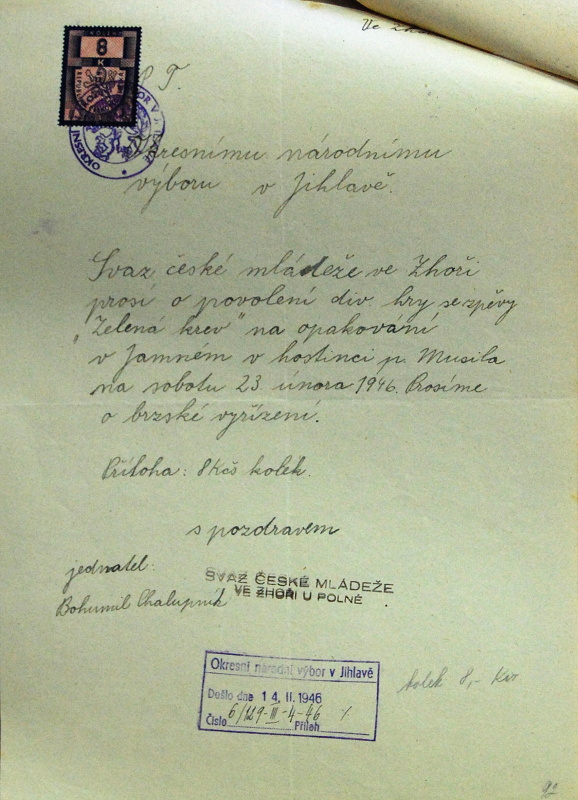 Ve
KOLEK
8
K
P. T.
OKRESNÍ
Okresnímu národnímu
výboru v Jihlavě.
Svaz české mládeže ve Zhoři
prosí o povolení div. hry se zpěvy
"Zelená krev" na opakování
v Jamném v hostinci p. Musila
na sobotu 23. února 1946. Prosíme
o brzské vyřízení.
Příloha: 8 Kčs kolek.
s pozdravem
jednatel:
Bohumil Chalupník
SVAZ ČESKÉ MLÁDEŽE
VE ZHOŘI U POLNÉ
Okresní národní výbor v Jihlavě
Došlo dne 14. II. 1946
Číslo 6/129-III-4-46 Příloh
kolek 8,-